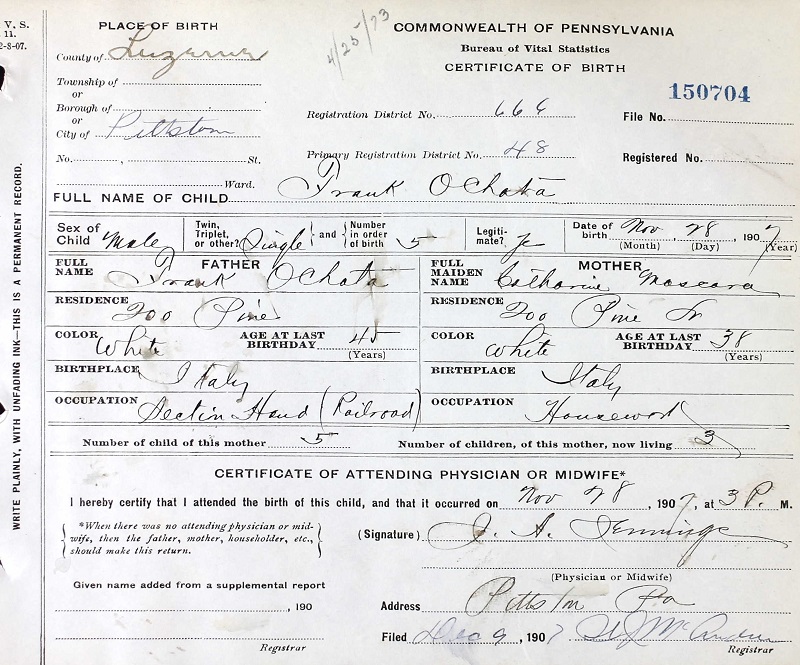 V. S.
11.
2-8-07.
PLACE OF BIRTH
4/25/73
COMMONWEALTH OF PENNSYLVANIA
Bureau of Vital Statistics
CERTIFICATE OF BIRTH
County of Luzerne
Township of
or
Borough of
or
City of Pittston
No. , St.
Ward.
Registration District No. 666
Primary Registration District No. 48
150704
File No.
Registered No.
FULL NAME OF CHILD Frank Ochata
Sex of Child Male Twin, Triplet, or other? Single and Number in order of birth 5 Legitimate? Date of birth Nov 28, 1907
(Month) (Day) (Year)
FATHER
FULL NAME Frank Ochata
RESIDENCE 200 Pine
COLOR White AGE AT LAST BIRTHDAY 45
(Years)
BIRTHPLACE Italy
OCCUPATION Sectin Hand (Railroad)
MOTHER
FULL MAIDEN NAME Catharine Mascara
RESIDENCE 200 Pine
COLOR White AGE AT LAST BIRTHDAY 38
(Years)
BIRTHPLACE Italy
OCCUPATION Housework
Number of child of this mother 5 Number of children, of this mother, now living 3
CERTIFICATE OF ATTENDING PHYSICIAN OR MIDWIFE*
I hereby certify that I attended the birth of this child, and that it occurred on Nov 28, 1907, at 3 P. M.
*When there was no attending physician or mid-
wife, then the father, mother, householder, etc.,
should make this return.
(Signature) J. A. Jennings
(Physician or Midwife)
Given name added from a supplemental report
, 190
Registrar
Address Pittston Pa
Filed Dec 9, 1907
Registrar
WRITE PLAINLY, WITH UNFADING INK—THIS IS A PERMANENT RECORD.